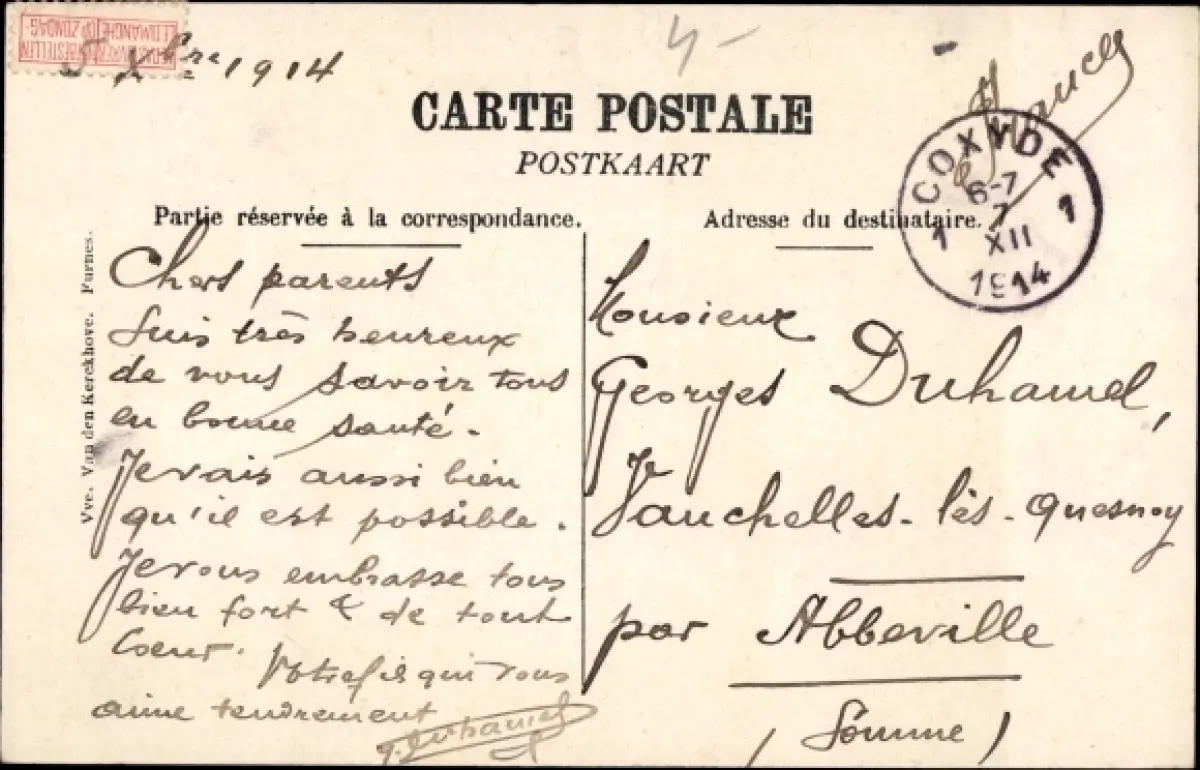 NE PAS LIVRER LE DIMANCHE
NIET BESTELLEN OP ZONDAG
5 Xbre 1914
4 -
CARTE POSTALE
POSTKAART
COXYDE
6-7
7
XII
1914
1 1
Partie réservée à la correspondance.
Adresse du destinataire.
Vve. Van den Kerckhove. Furnes.
Chers parents
Suis très heureux
de vous savoir tous
en bonne santé.
Je vais aussi bien
qu'il est possible.
Je vous embrasse tous
bien fort & de tout
Coeur. Votre fils qui vous
aime tendrement
g. Duhamel
Monsieur
Georges Duhamel,
Vauchelles-lès-Quesnoy
par Abbeville
(Somme)